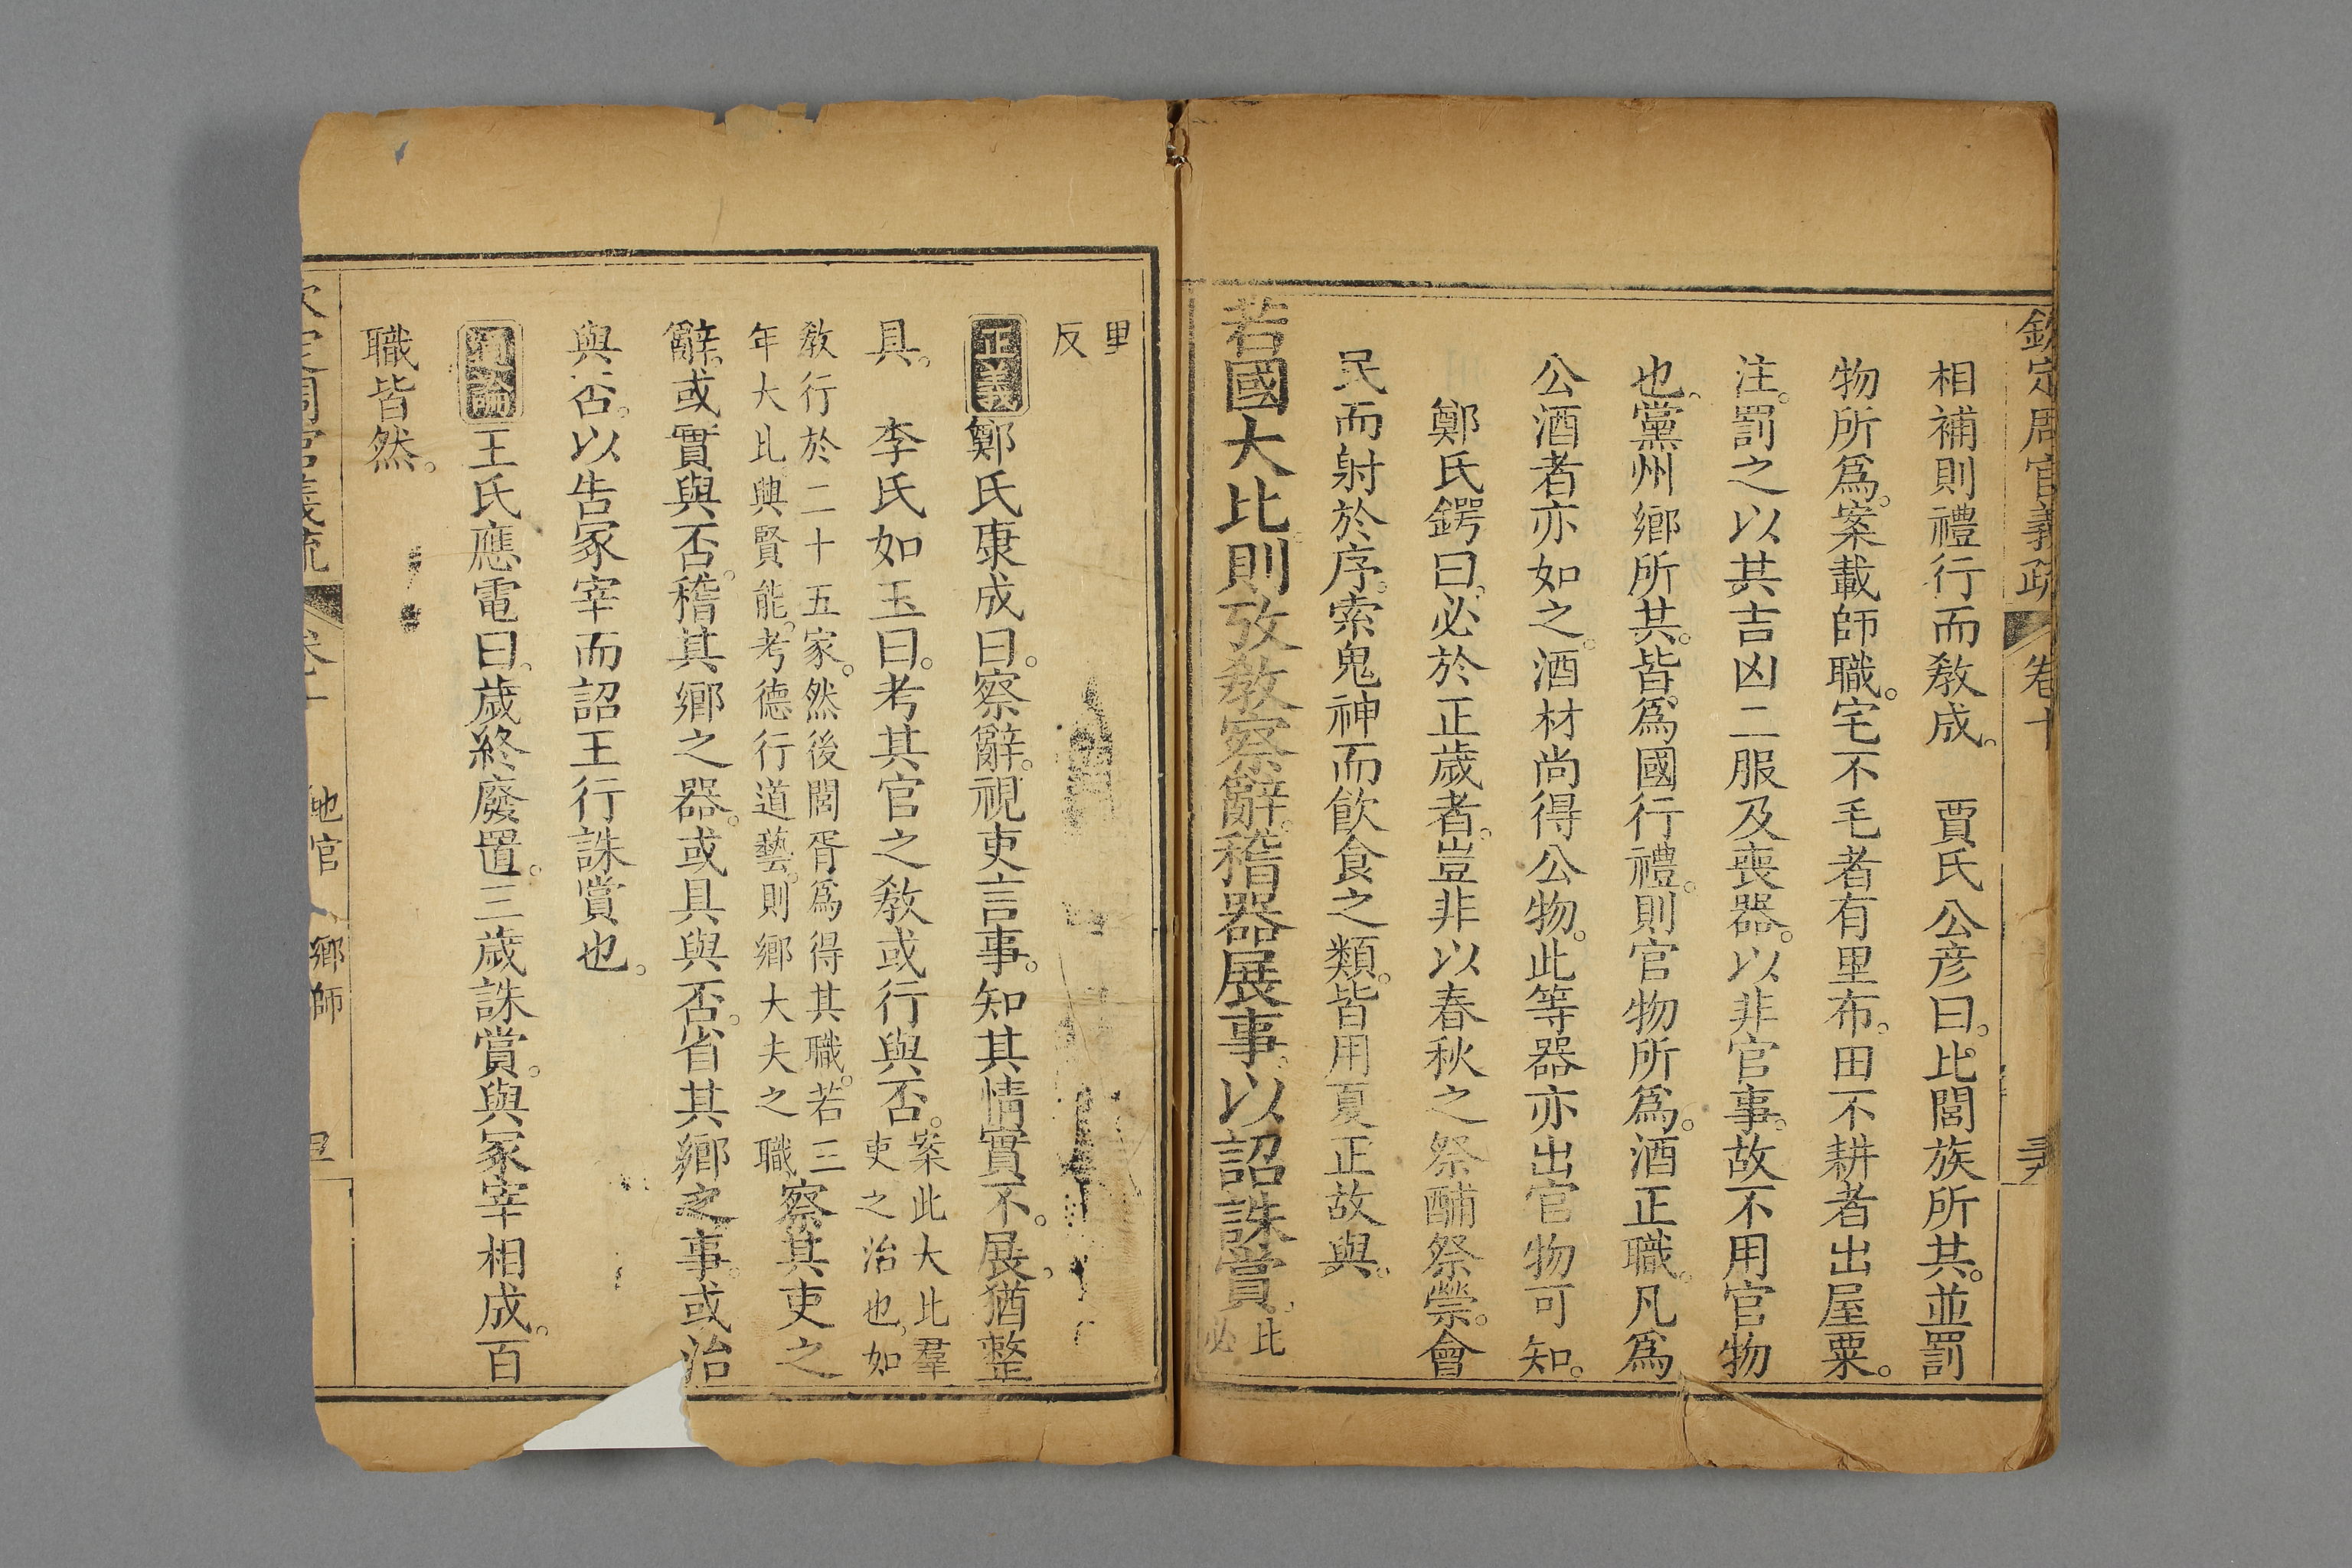 欽定周官義疏 卷十
相補則禮行而敎成。 賈氏公彦曰。比閭族所共。並罰
物所爲。案載師職。宅不毛者有里布。田不耕者出屋粟。
注。罰之以其吉凶二服及喪器。以非官事。故不用官物
也。黨州鄉所共。皆爲國行禮。則官物所爲。酒正職。凡爲
公酒者亦如之。酒材尚得公物。此等器亦出官物可知。
鄭氏鍔曰。必於正歲者。豈非以春秋之祭酺祭禜。會
民而射於序。索鬼神而飲食之類。皆用夏正故與。
若國大比則攷敎察辭。稽器展事。以詔誅賞。比
必
里
反
正義鄭氏康成曰。察辭。視吏言事。知其情實不。展。猶整
具。 李氏如玉曰。考其官之敎或行與否。案此大比羣
吏之治也。如
敎行於二十五家。然後閭胥爲得其職。若三
年大比興賢能。考德行道藝。則鄉大夫之職察其吏之
辭。或實與否。稽其鄉之器。或具與否。省其鄉之事。或治
與否。以告冢宰而詔王行誅賞也。
通論王氏應電曰。歲終廢置。三歲誅賞。與冢宰相成。百
職皆然。
地官 鄉師